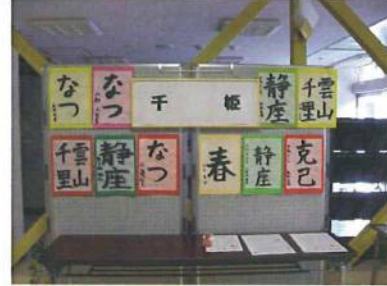 なつ
なつ
千 姫
静座
雲山
千里
雲山
千里
静座
なつ
春
静座
克己